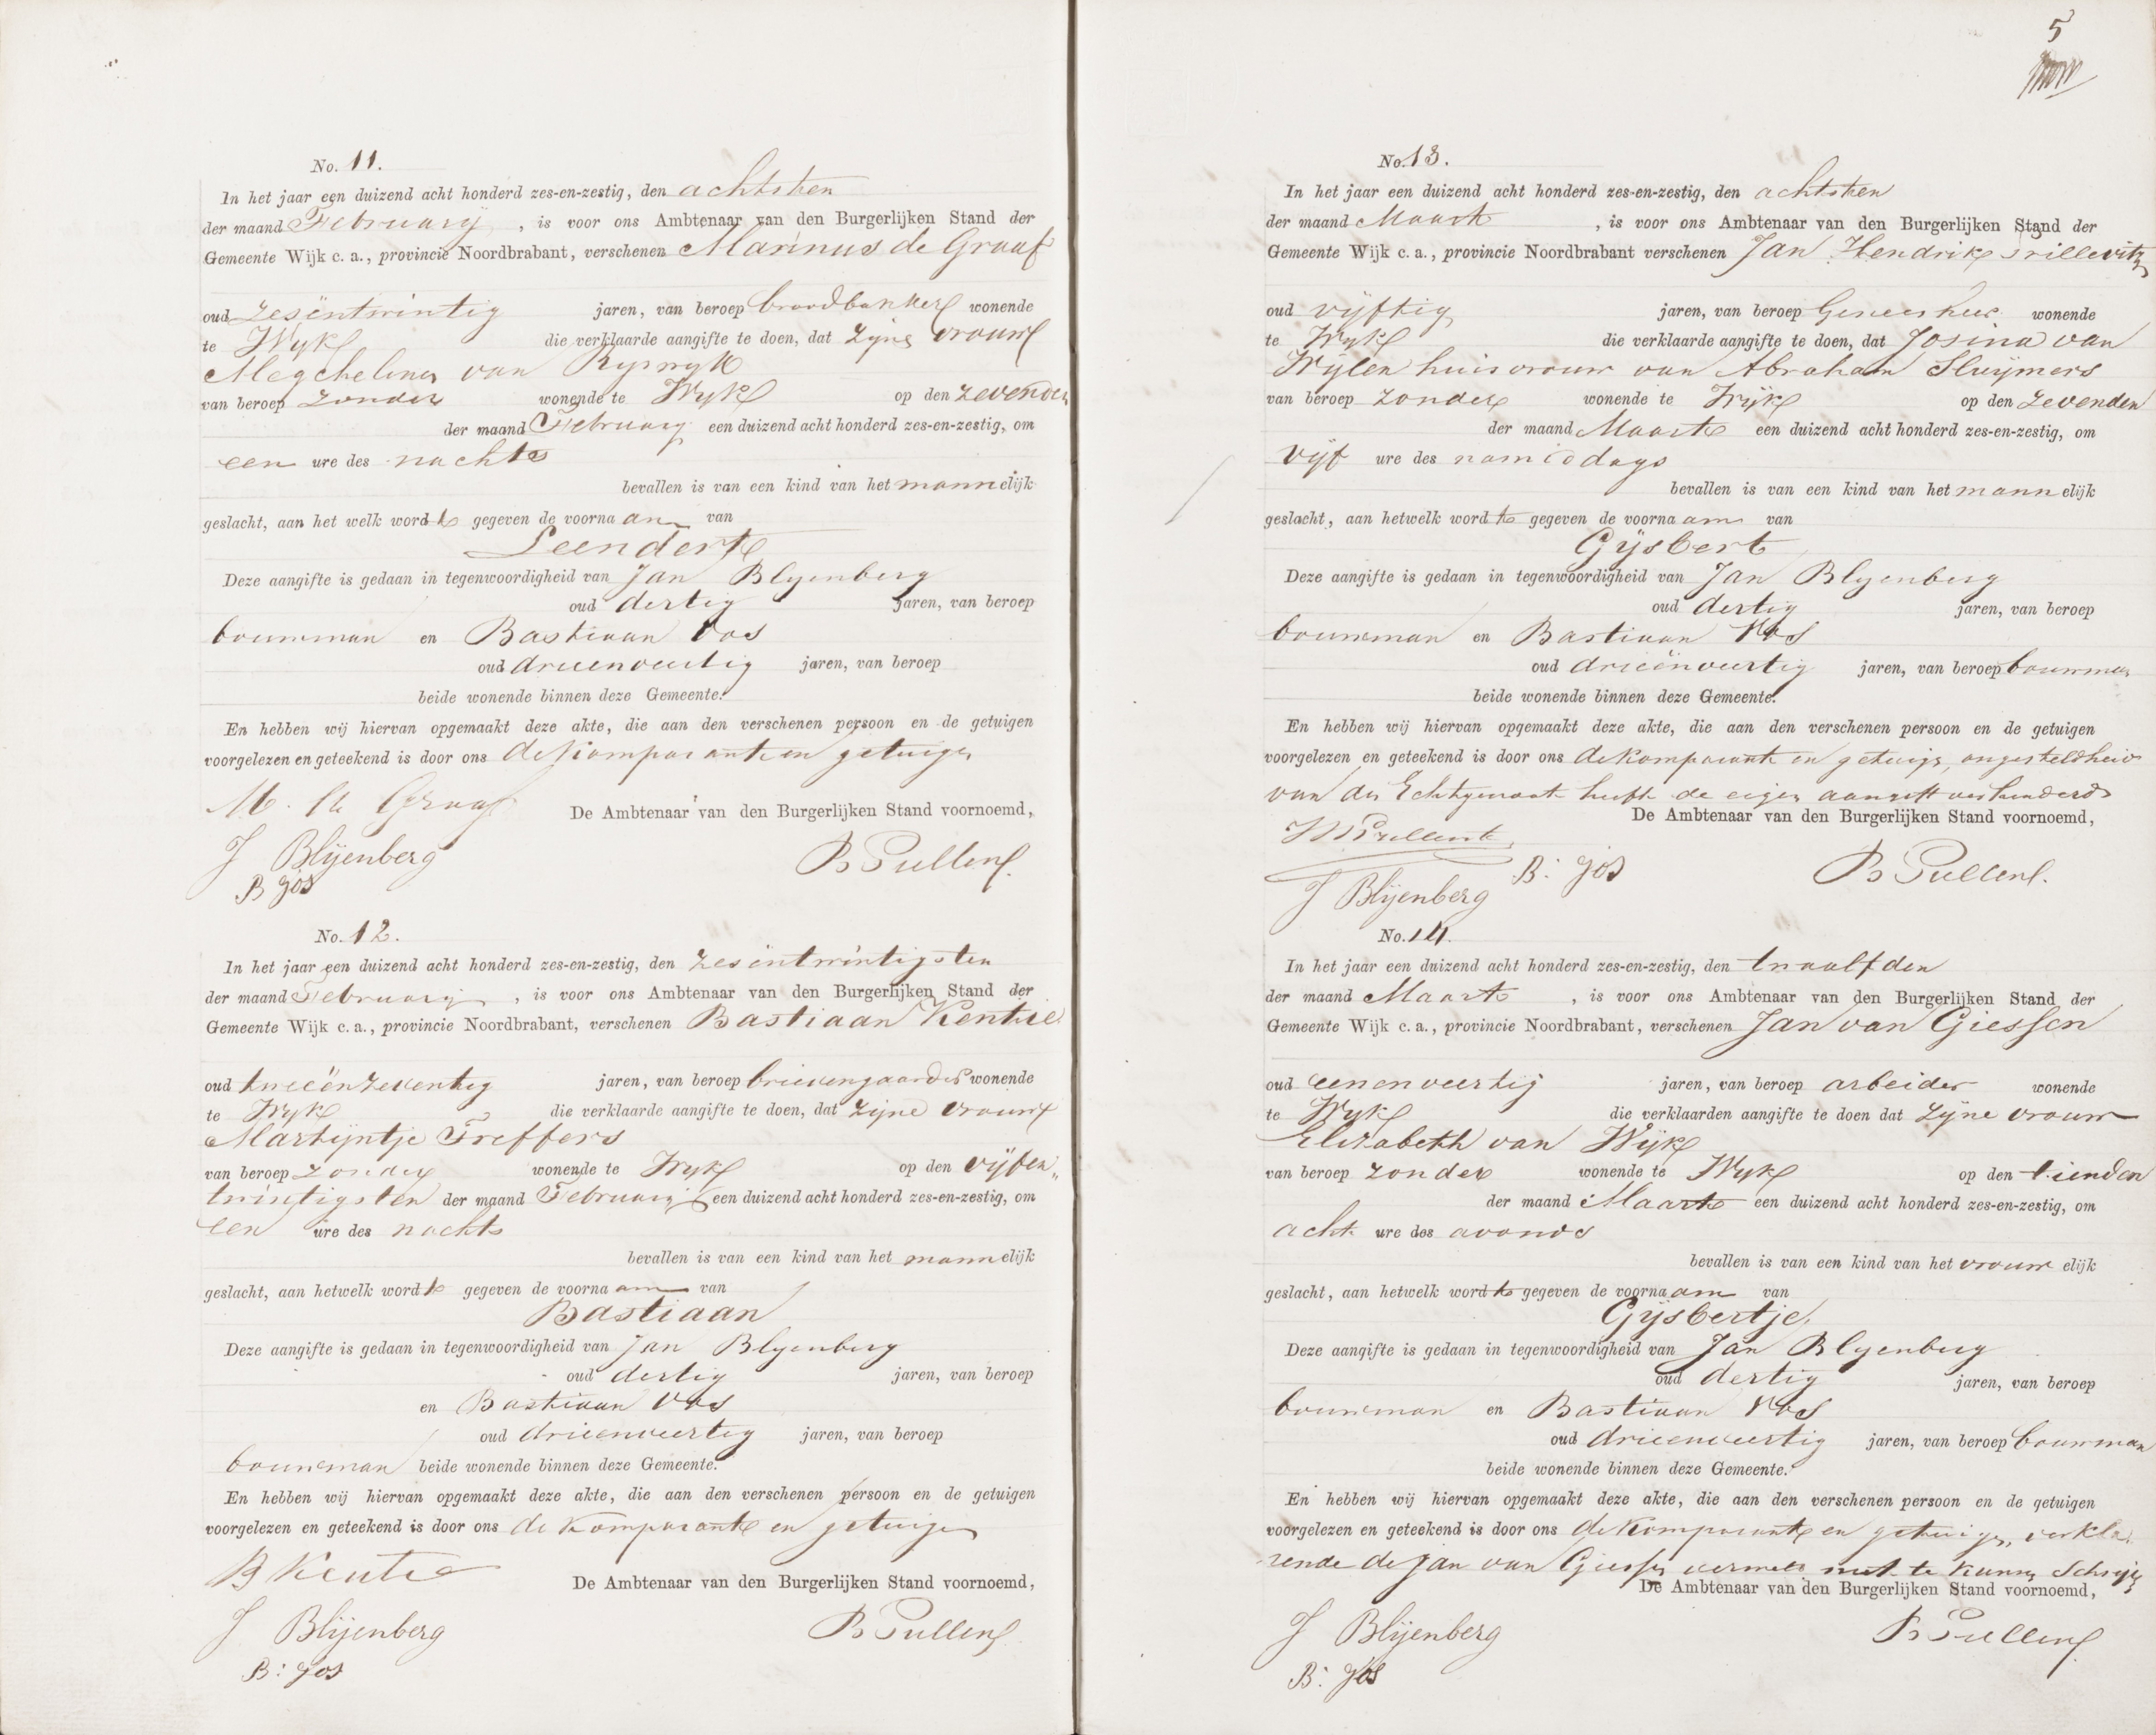 No. 11.
In het jaar een duizend acht honderd zes-en-zestig, den achtsten
der maand February , is voor ons Ambtenaar van den Burgerlijken Stand der
Gemeente Wijk c. a., provincie Noordbrabant, verschenen Marinus de Graaf
oud zesëntwintig jaren, van beroep broodbakker wonende
te Wyk die verklaarde aangifte te doen, dat zijne vrouw
Megchelina van Ryswyk
van beroep zonder wonende te Wyk op den zevenden
der maand February een duizend acht honderd zes-en-zestig, om
een ure des nachts
bevallen is van een kind van het mannelijk
geslacht, aan het welk wordt gegeven de voornaam van
Leendert
Deze aangifte is gedaan in tegenwoordigheid van Jan Blyenberg
oud dertig jaren, van beroep
bouwman en Bastiaan Vos
oud drieenveertig jaren, van beroep
beide wonende binnen deze Gemeente.
En hebben wij hiervan opgemaakt deze akte, die aan den verschenen persoon en de getuigen
voorgelezen en geteekend is door ons de komparant en getuigen
M. de Graaf
De Ambtenaar van den Burgerlijken Stand voornoemd,
J Blijenberg
B Pullens.
B Vos
No. 12.
In het jaar een duizend acht honderd zes-en-zestig, den zesëntwintigsten
der maand February , is voor ons Ambtenaar van den Burgerlijken Stand der
Gemeente Wijk c. a., provincie Noordbrabant, verschenen Bastiaan Kentie
oud tweeënzeventig jaren, van beroep brievengaarder wonende
te Wyk die verklaarde aangifte te doen, dat zijne vrouw
Martijntje Treffers
van beroep zonder wonende te Wyk op den vijfen„
twintigsten der maand February een duizend acht honderd zes-en-zestig, om
een ure des nachts
bevallen is van een kind van het mannelijk
geslacht, aan hetwelk wordt gegeven de voornaam van
Bastiaan
Deze aangifte is gedaan in tegenwoordigheid van Jan Blyenberg
oud dertig jaren, van beroep
en Bastiaan Vos
oud drieenveertig jaren, van beroep
bouwman beide wonende binnen deze Gemeente.
En hebben wij hiervan opgemaakt deze akte, die aan den verschenen persoon en de getuigen
voorgelezen en geteekend is door ons de komparant en getuigen
B Kentie
De Ambtenaar van den Burgerlijken Stand voornoemd,
J Blijenberg
B Pullens
B: Vos
5
No. 13.
In het jaar een duizend acht honderd zes-en-zestig, den achtsten
der maand Maart , is voor ons Ambtenaar van den Burgerlijken Stand der
Gemeente Wijk c. a., provincie Noordbrabant verschenen Jan Hendrik
oud vijftig jaren, van beroep Geneesheer wonende
te Wyk die verklaarde aangifte te doen, dat Josina van
Wijlen huisvrouw van Abraham Sluijmers
van beroep zonder wonende te Wijk op den zevenden
der maand Maart een duizend acht honderd zes-en-zestig, om
vijf ure des namiddags
bevallen is van een kind van het mannelijk
geslacht, aan hetwelk wordt gegeven de voornaam van
Gijsbert
Deze aangifte is gedaan in tegenwoordigheid van Jan Blyenberg
oud dertig jaren, van beroep
bouwman en Bastiaan Vos
oud drieënveertig jaren, van beroep bouwman
beide wonende binnen deze Gemeente.
En hebben wij hiervan opgemaakt deze akte, die aan den verschenen persoon en de getuigen
voorgelezen en geteekend is door ons de komparant en getuige, ongesteldheid
van de Echtgenoot heeft de eigen aangift verhinderd
De Ambtenaar van den Burgerlijken Stand voornoemd,
B: Vos
B Pullens.
J Blijenberg
No. 14.
In het jaar een duizend acht honderd zes-en-zestig, den twaalfden
der maand Maart , is voor ons Ambtenaar van den Burgerlijken Stand der
Gemeente Wijk c. a., provincie Noordbrabant, verschenen Jan van Giessen
oud eenenveertig jaren, van beroep arbeider wonende
te Wyk die verklaarden aangifte te doen dat zijne vrouw
Elizabeth van Wijk
van beroep zonder wonende te Wyk op den tienden
der maand Maart een duizend acht honderd zes-en-zestig, om
acht ure des avonds
bevallen is van een kind van het vrouwelijk
geslacht, aan hetwelk wordt gegeven de voornaam van
Gijsbertje
Deze aangifte is gedaan in tegenwoordigheid van Jan Blyenberg
oud dertig jaren, van beroep
bouwman en Bastiaan Vos
oud drieenveertig jaren, van beroep bouwman
beide wonende binnen deze Gemeente.
En hebben wij hiervan opgemaakt deze akte, die aan den verschenen persoon en de getuigen
voorgelezen en geteekend is door ons de komparant en getuigen, verkla
rende de Jan van Giessen vermeld niet te kunnen schrijven
De Ambtenaar van den Burgerlijken Stand voornoemd,
J Blijenberg
B Pullens
B: Vos